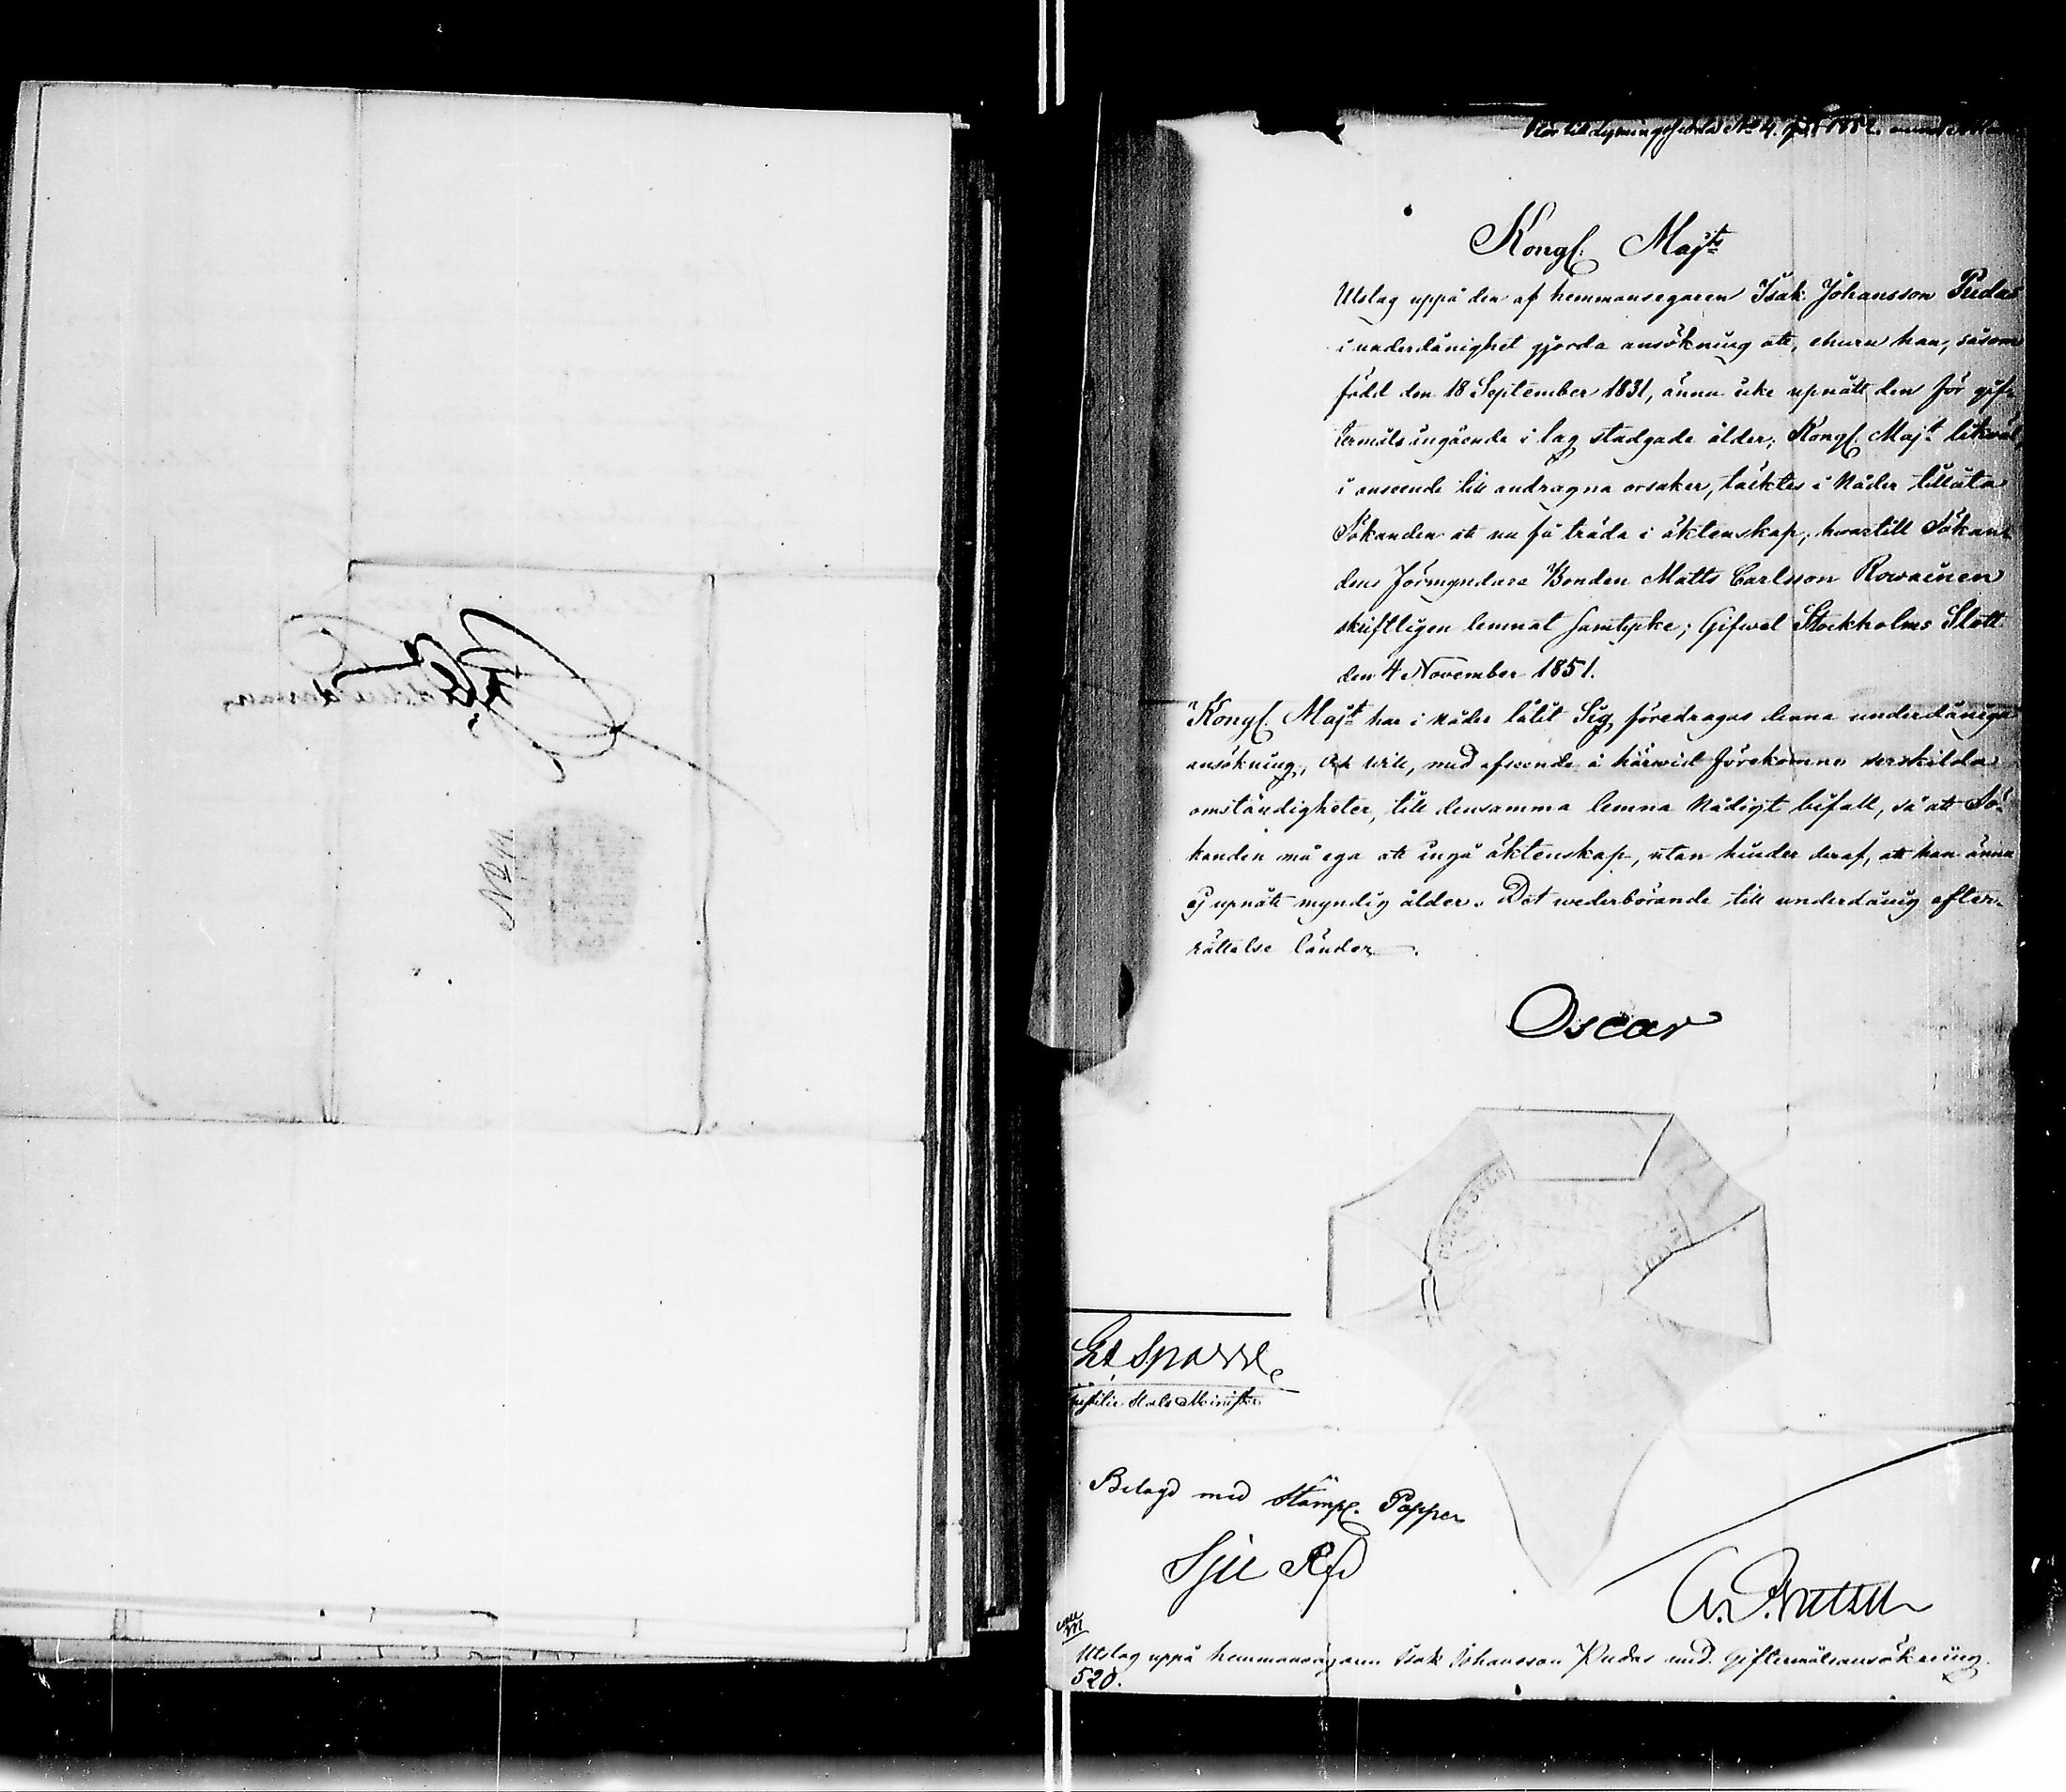 Kongl. Majts
Utslag uppå den af hemmansegaren Isak Johansson Pudas
i underdånighet gjorda ansökning att, ehuru han, såsom
född den 18 September 1831, ännu icke upnått den för gif-
termåls ingående i lag stadgade ålder, Kongl. Majt likväl,
i anseende till andragna orsaker, täcktes i Nåder tillåta
Sökanden att nu få träda i äktenskap, hwartill Sökan-
dens Förmyndare Bonden Matts Carlsson Rowainen
skriftligen lemnat samtycke; Gifwet Stockholms Slott
den 4 November 1851.
Kongl. Majt har i Nåder låtit Sig föredragas denna underdåniga
ansökning, och will, med afseende å härwid förekomne serskilda
omständigheter, till densamma lemna Nådigt bifall, så att Sö-
kanden må ega att ingå äktenskap, utan hinder deraf, att han ännu
ej upnått myndig ålder. Det wederbörande till underdånig efter-
rättelse länder.
Oscar
G A Sparre
Justitie Stats Minister
Belagd med Stämpl. Papper
Sju Rd
Utslag uppå hemmansegaren Isak Johansson Pudas und. giftermålsansökning.
520.